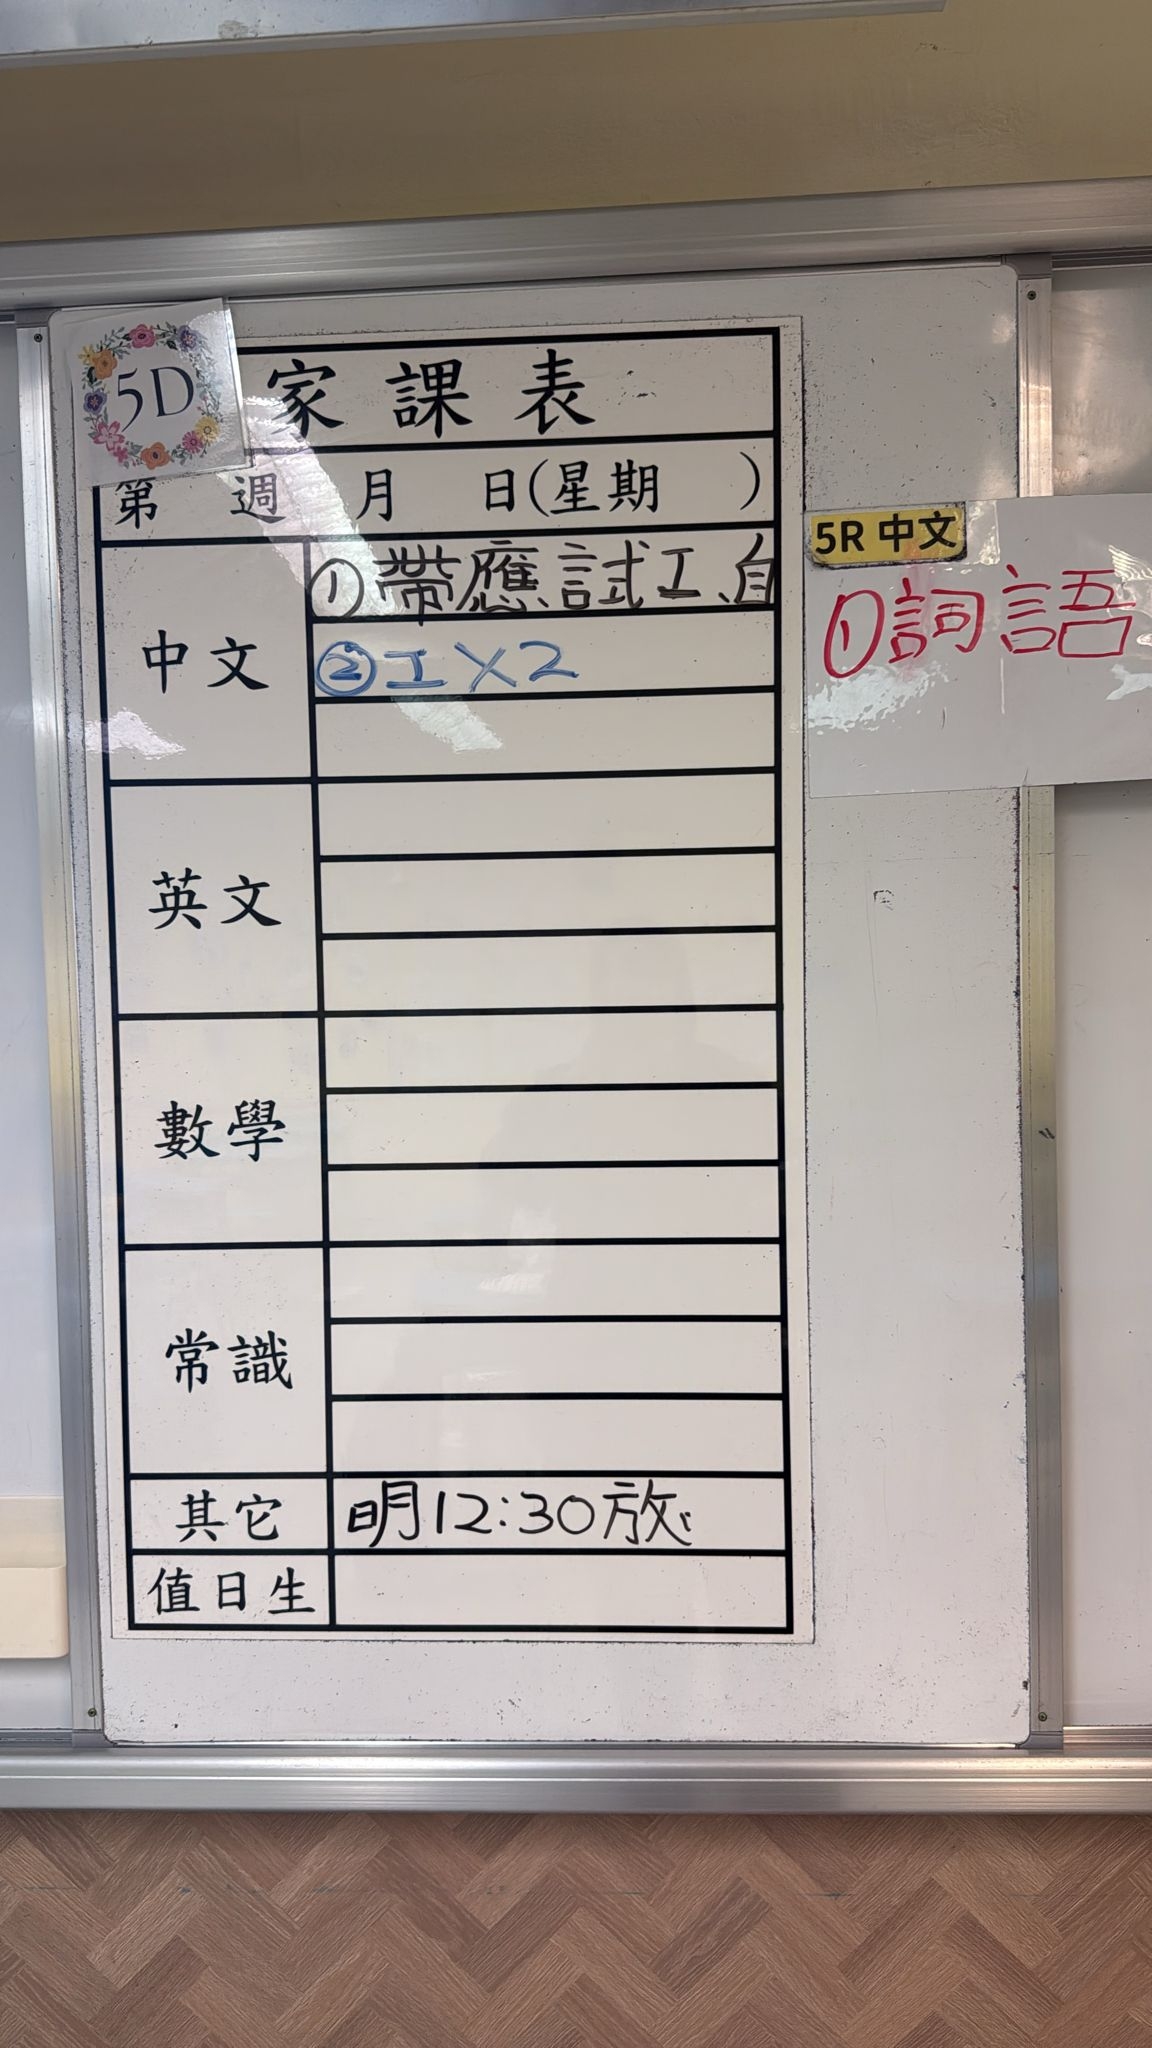 5D
家課表
第 週 月 日(星期 )
中文
①帶應試工、自
②工X2
英文
數學
常識
其它
明12:30放
值日生
5R 中文
①詞語